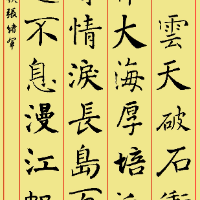 雲天破石衝
大海厚培
情淚長島
不息漫江
張緒軍